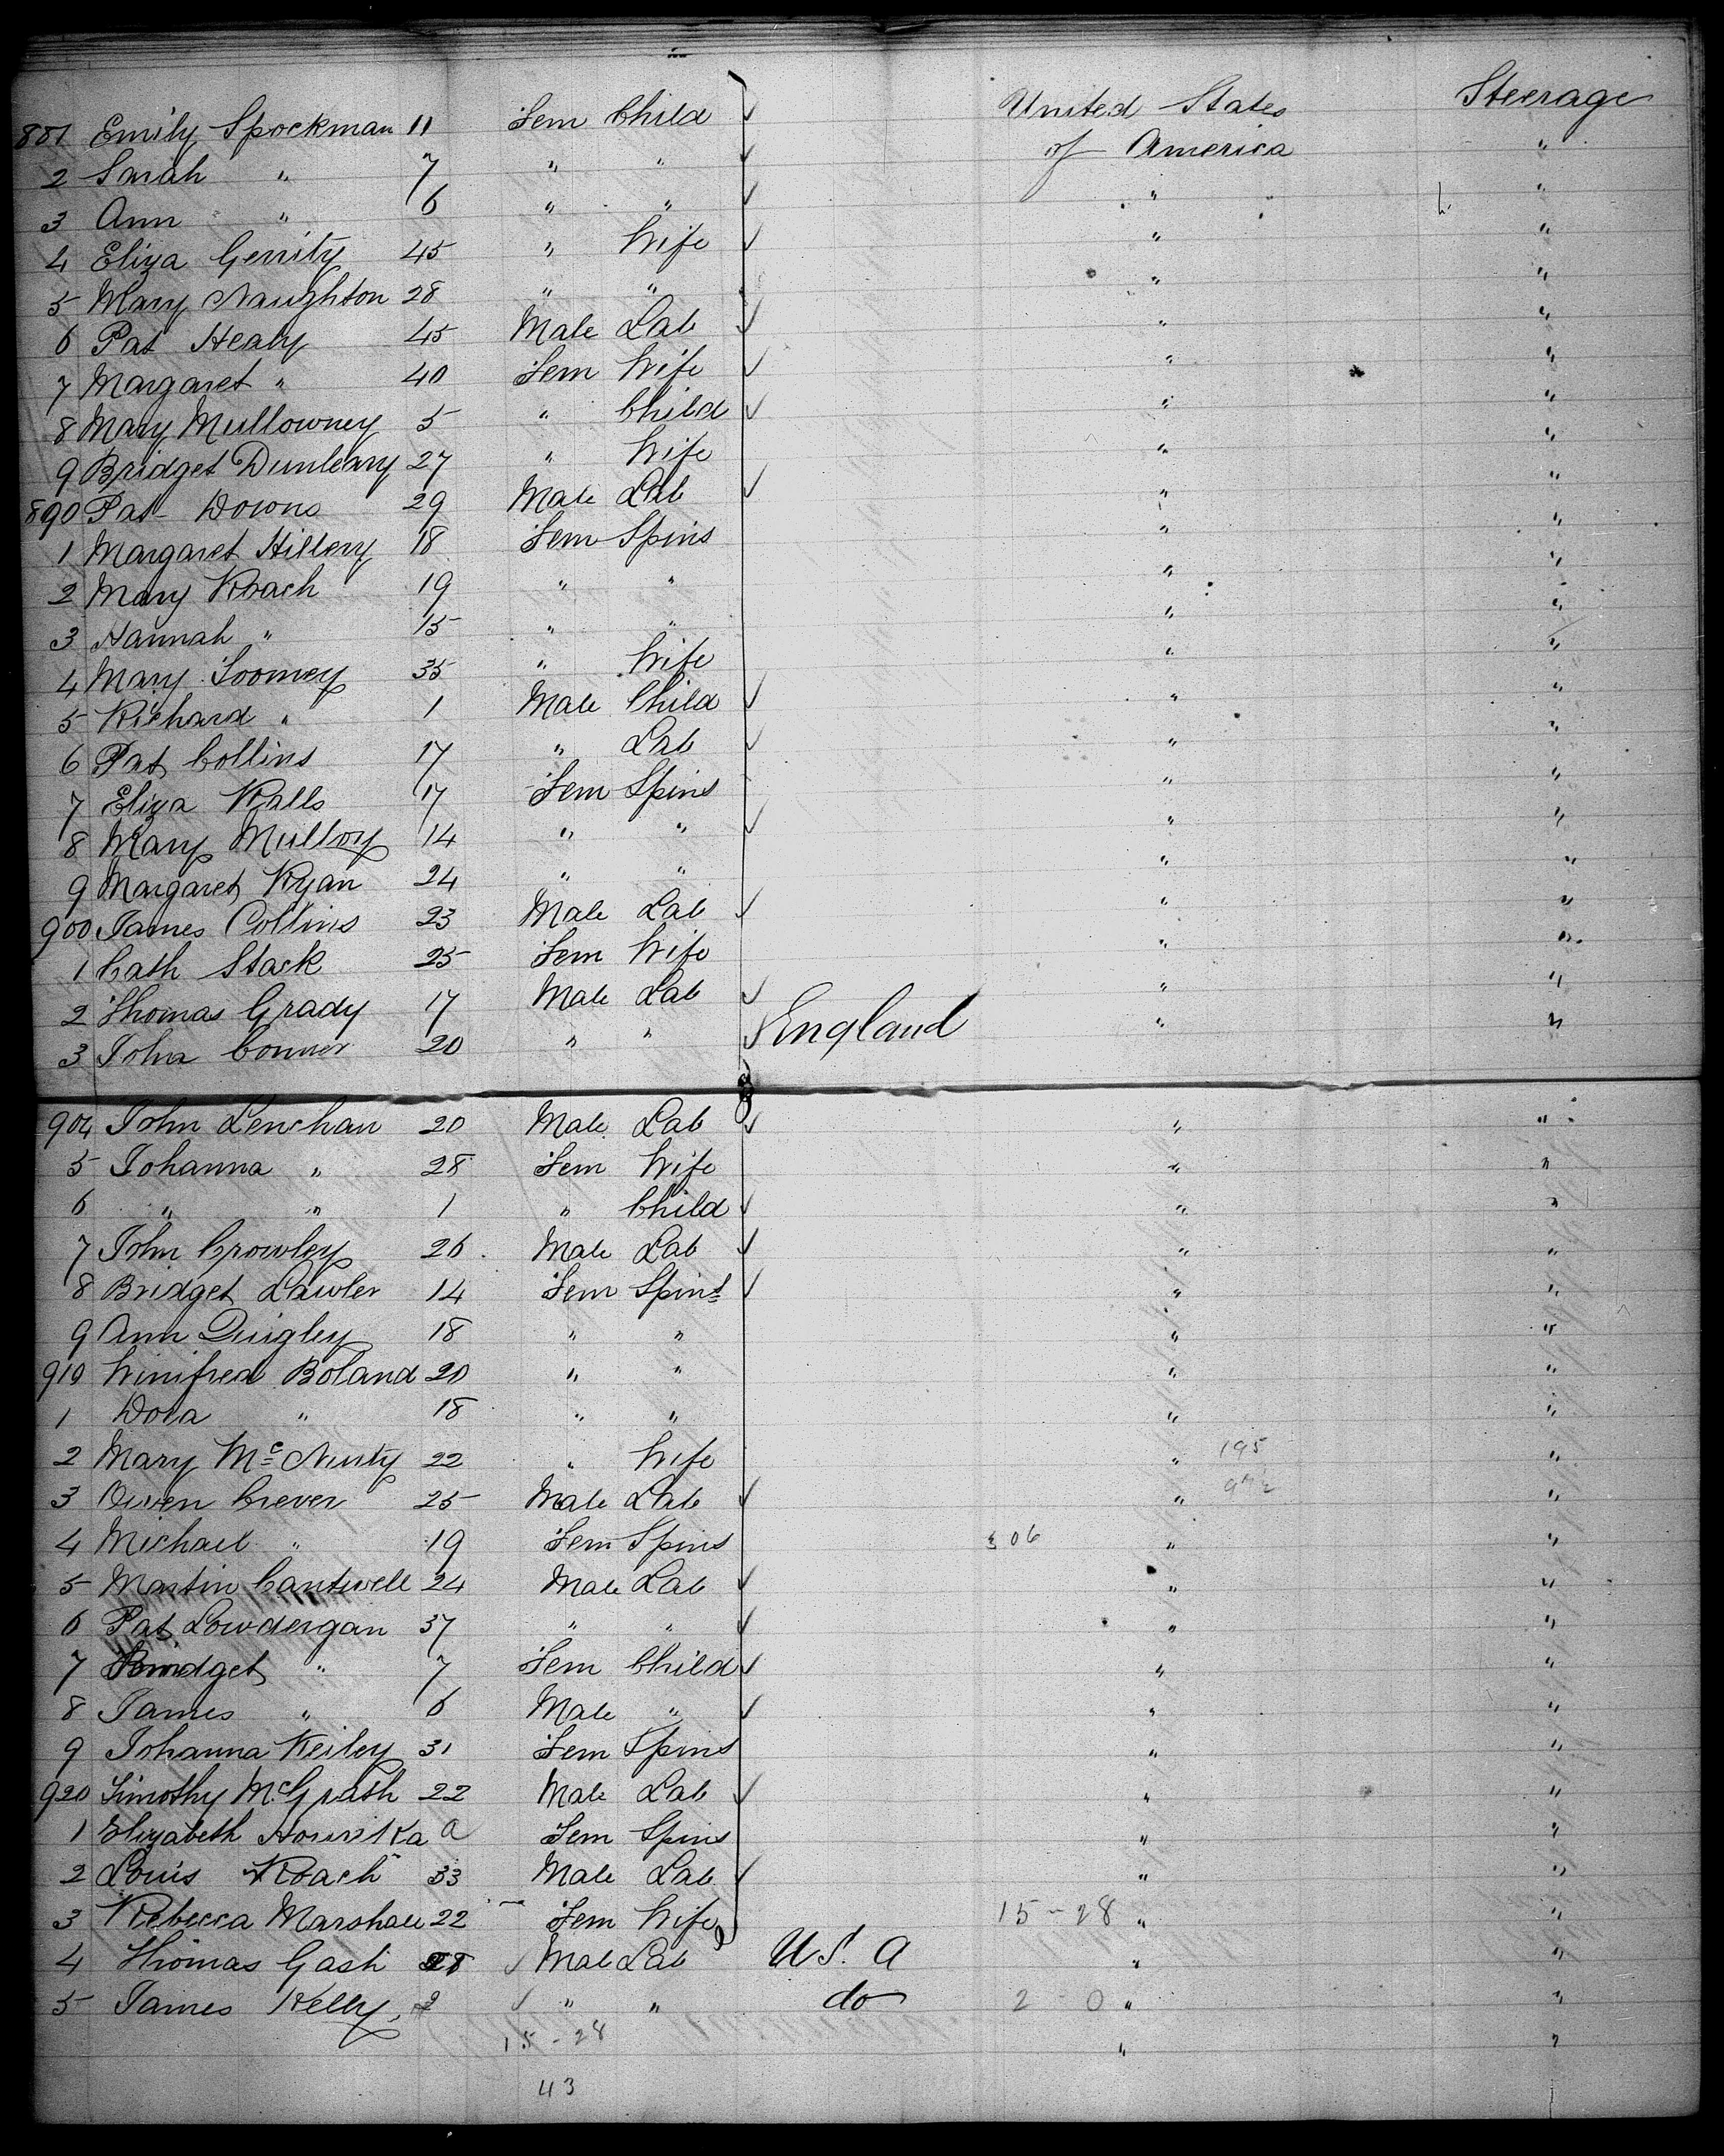 881 Emily Spockman 11 Fem Child United States Steerage
2 Sarah " 7 " " of America "
3 Ann " 6 " " " "
4 Eliza Gerrity 45 " Wife " "
5 Mary Naughton 28 " " " "
6 Pat Healy 45 Male Lab " "
7 Margaret " 40 Fem Wife " "
8 Mary Mullowney 5 " Child " "
9 Bridget Dunleavy 27 " Wife " "
890 Pat Downs 29 Male Lab " "
1 Margaret Hillery 18 Fem Spins " "
2 Mary Roach 19 " " " "
3 Hannah " 15 " " " "
4 Mary Toomey 35 " Wife " "
5 Richard " 1 Male Child " "
6 Pat Collins 17 " Lab " "
7 Eliza Ralls 17 Fem Spins " "
8 Mary Mulloy 14 " " " "
9 Margaret Ryan 24 " " " "
900 James Collins 23 Male Lab " "
1 Cath Stack 25 Fem Wife " "
2 Thomas Grady 17 Male Lab " "
3 John Connor 20 " " England " "
904 John Lenehan 20 Male Lab " "
5 Johanna " 28 Fem Wife " "
6 " " 1 " Child " "
7 John Crowley 26 Male Lab " "
8 Bridget Lawler 14 Fem Spins " "
9 Ann Quigley 18 " " " "
910 Winifred Boland 20 " " " "
1 Dora " 18 " " " "
2 Mary McNulty 22 " Wife " 195 "
3 Owen Crever 25 Male Lab " "
4 Michael " 19 Fem Spins 306 " "
5 Martin Cantwell 24 Male Lab " "
6 Pat Lowdergan 37 " " " "
7 Bridget " 7 Fem Child " "
8 James " 6 Male " " "
9 Johanna Keiley 31 Fem Spins " "
920 Timothy McGrath 22 Male Lab " "
1 Elizabeth a Fem Spins " "
2 Louis Roach 33 Male Lab " "
3 Rebecca Marshall 22 Fem Wife 15-28 " "
4 Thomas Gash 28 Male Lab U.S.A " "
5 James Kelly 2 " " do 2 0 " "
15-28 " "
43